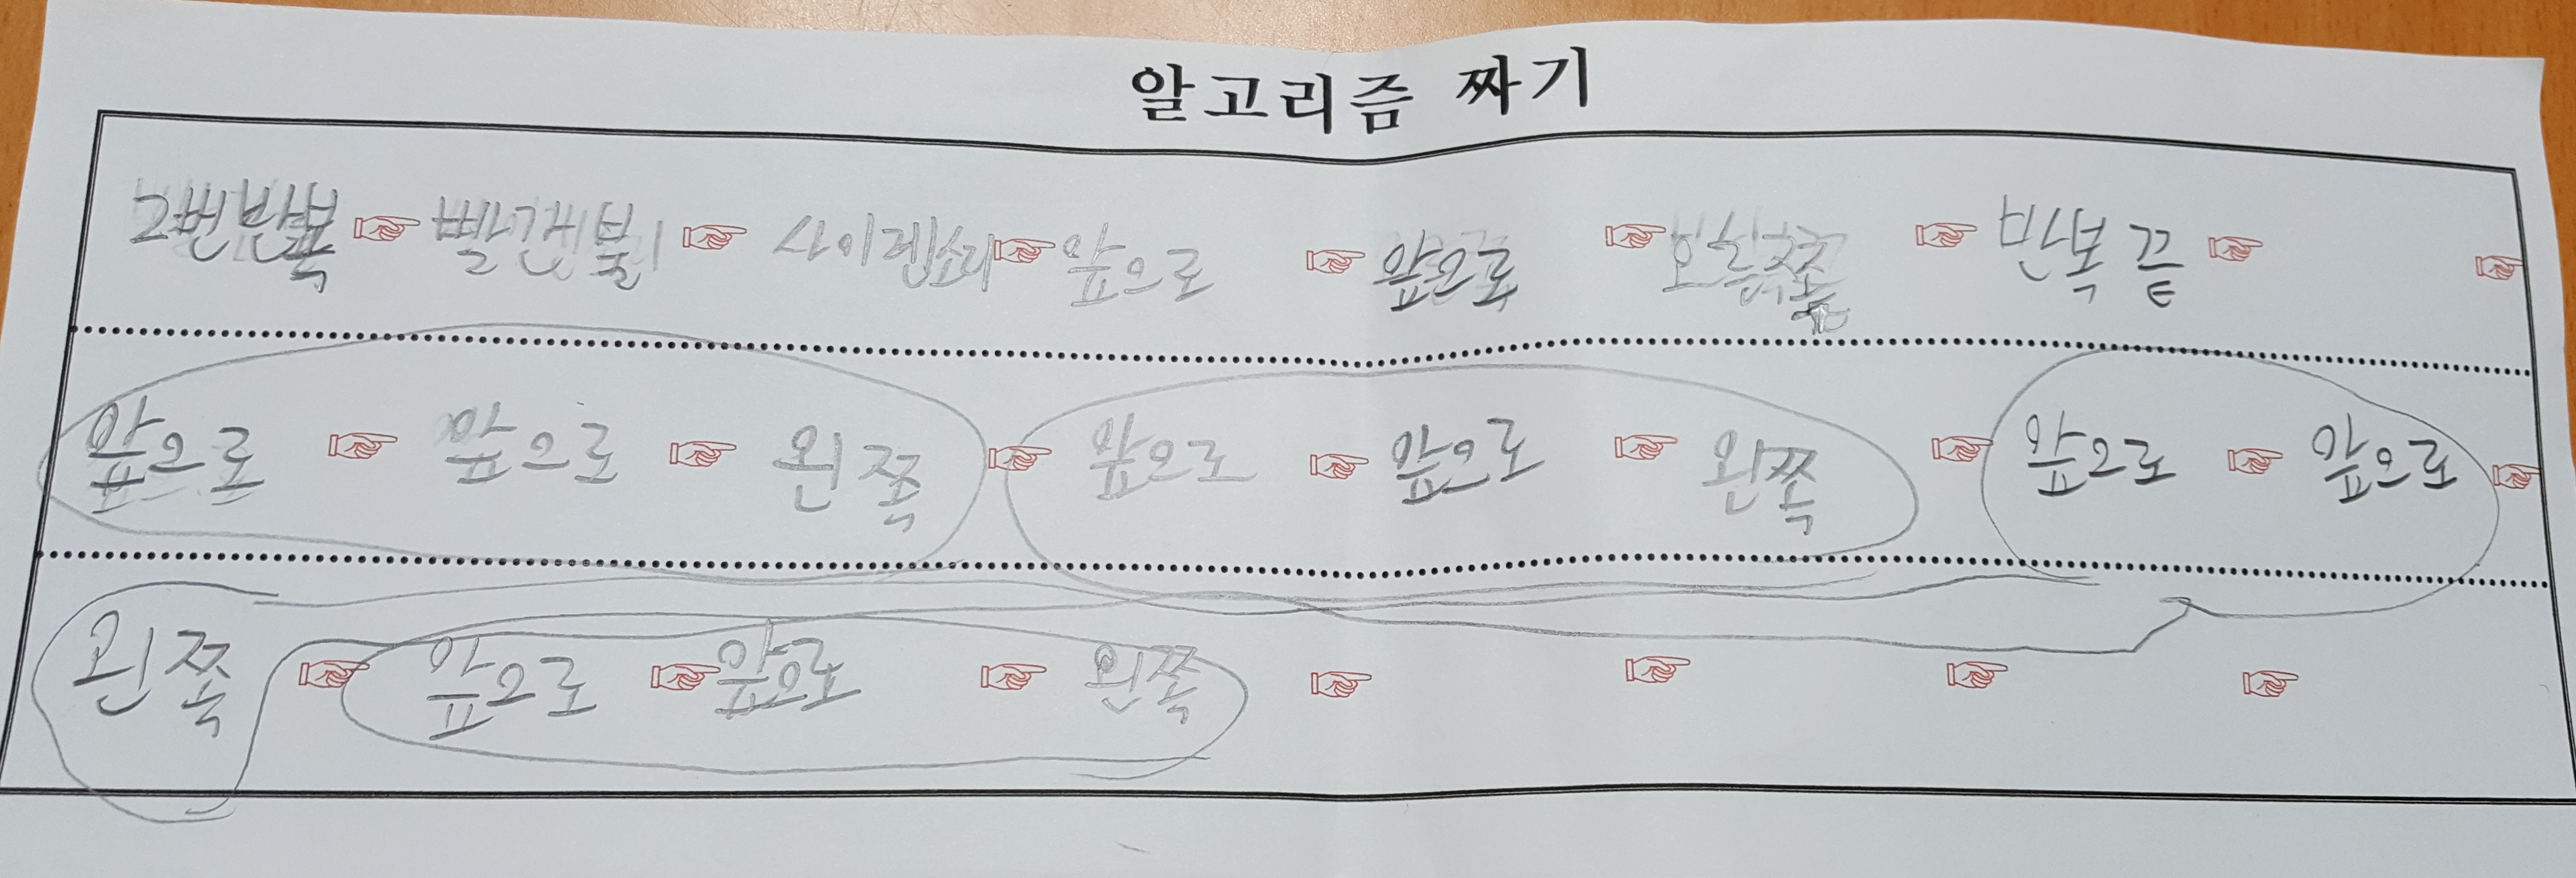 알고리즘 짜기
2번반복 ☞ 빨간불 ☞ 사이렌소리 ☞ 앞으로 ☞ 앞으로 ☞ 오른쪽 ☞ 반복 끝 ☞ ☞
앞으로 ☞ 앞으로 ☞ 왼쪽 ☞ 앞으로 ☞ 앞으로 ☞ 왼쪽 ☞ 앞으로 ☞ 앞으로 ☞
왼쪽 ☞ 앞으로 ☞ 앞으로 ☞ 왼쪽 ☞ ☞ ☞ ☞